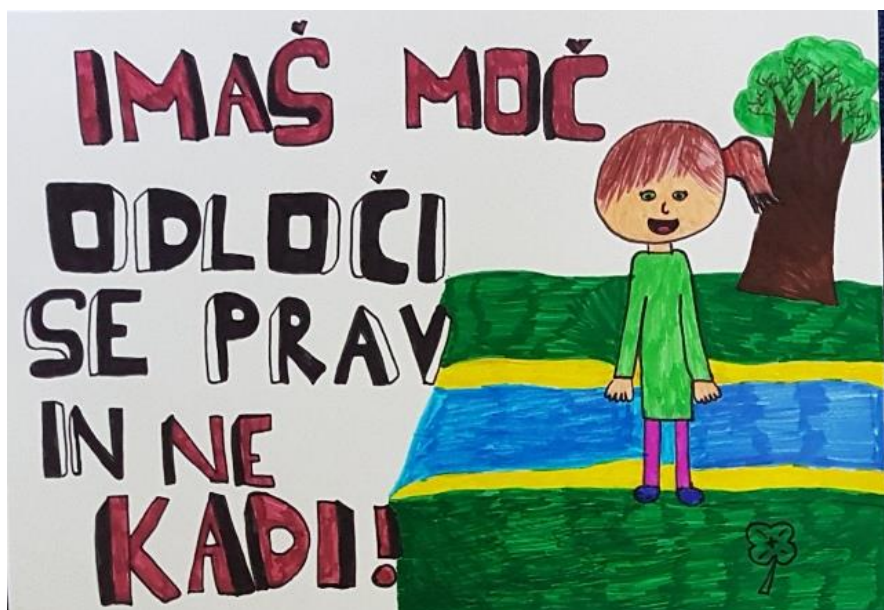 IMAŠ MOČ
ODLOČI
SE PRAV
IN NE
KADI!